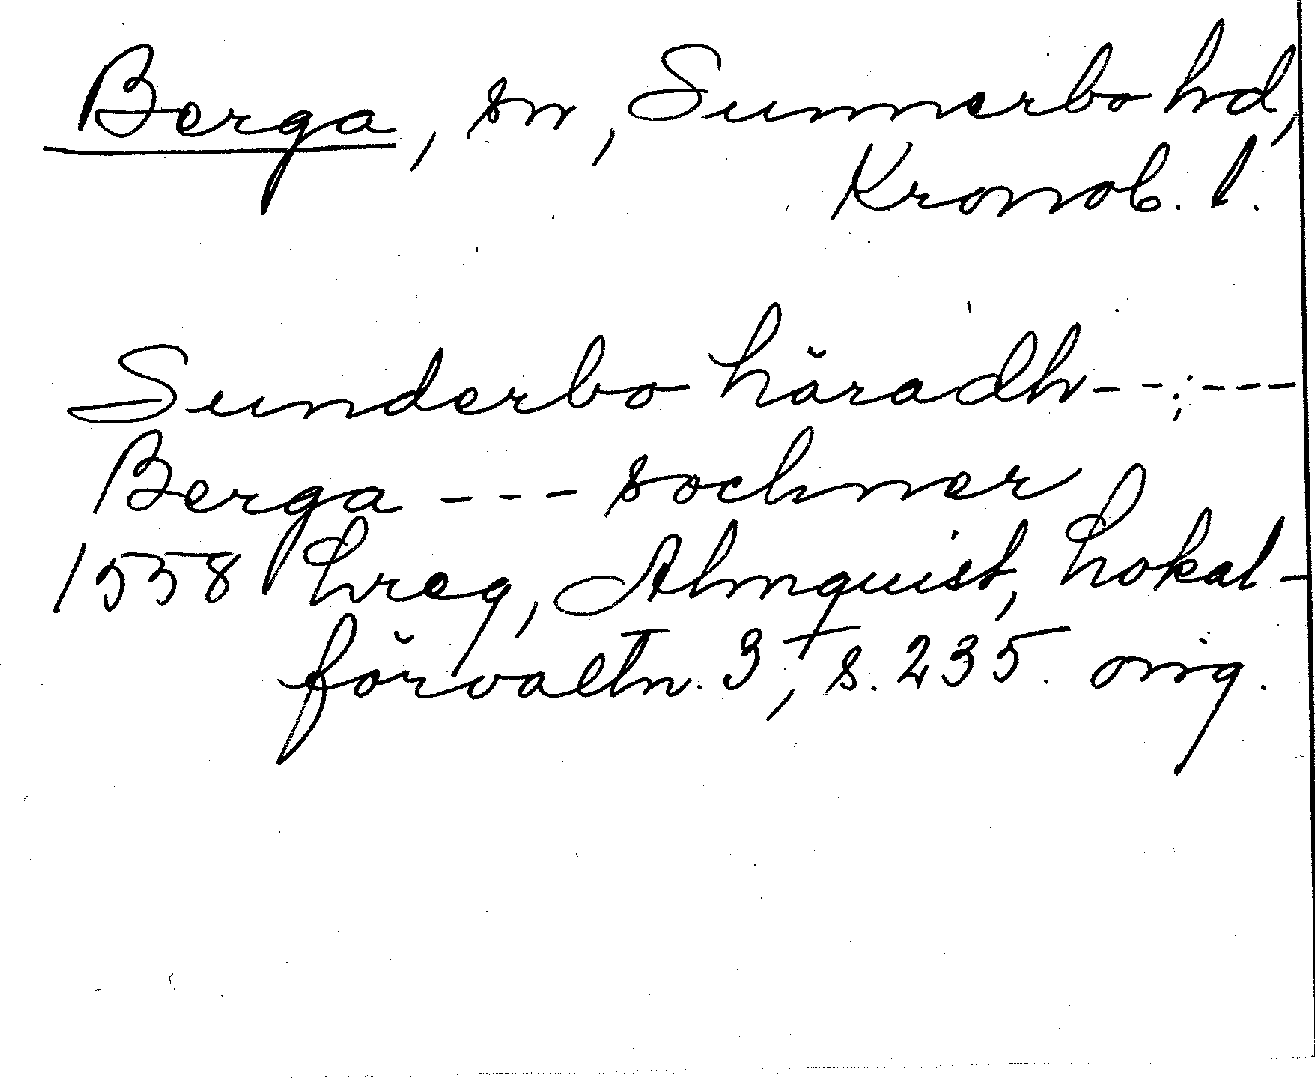 Berga, sn, Sunnerbo hd,
Kronob. l.
Sunderbo häradh--;---
Berga --- sochner
1558 hreg, Almquist, Lokal-
förvaltn. 3, s. 235. orig.